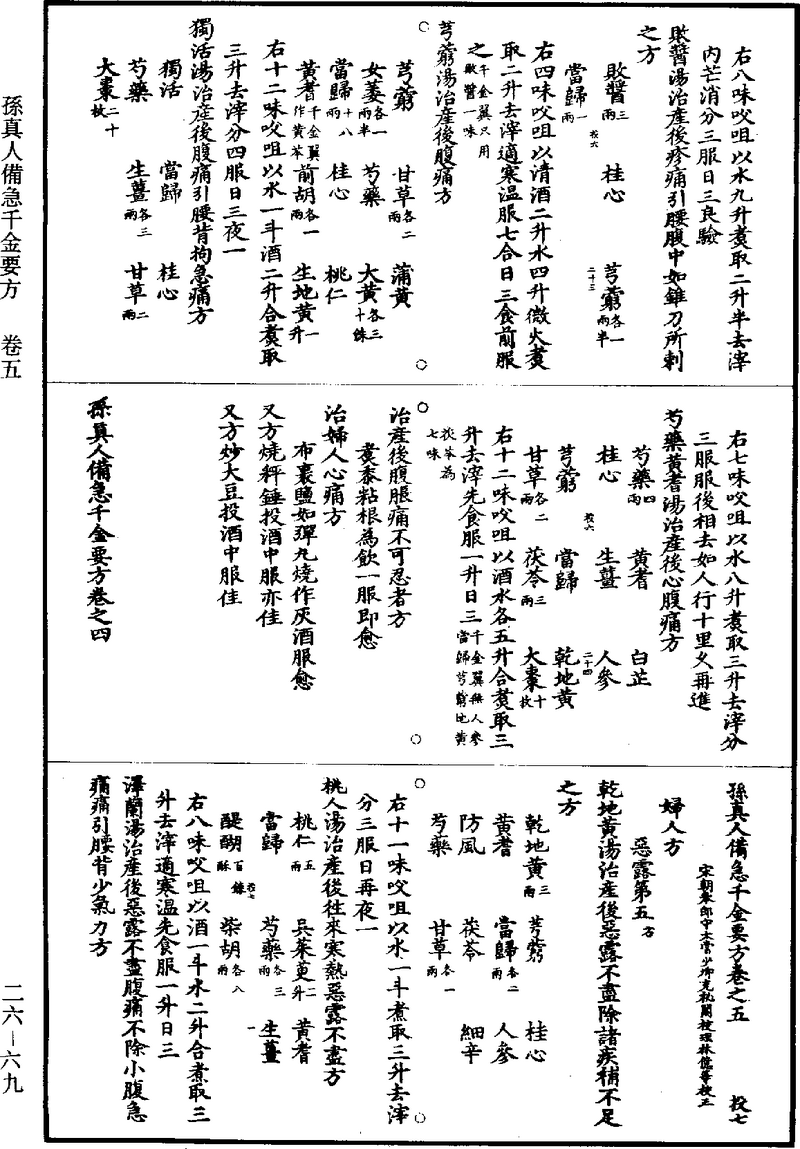 右八味㕮咀以水九升煮取二升半去滓
內芒消分三服日三良驗
敗醬湯治産後疹痛引腰腹中如錐刀所刺
之方
敗醬三兩 桂心 芎藭各一兩半
當歸一兩
投六
二十三
右四味㕮咀以清酒二升水四升微火煮
取二升去滓適寒溫服七合日三食前服
之千金翼只用敗醬一味
芎藭湯治産後腹痛方
芎藭 甘草各二兩 蒲黃
女萎各一兩半 芍藥 大黃各三十銖
當歸十八兩 桂心 桃仁
黃耆千金翼作黃芩 前胡各一兩 生地黃一升
右十二味㕮咀以水一斗酒二升合煮取
三升去滓分四服日三夜一
獨活湯治産後腹痛引腰背拘急痛方
獨活 當歸 桂心
芍藥 生薑各三兩 甘草二兩
大棗二十枚
右七味㕮咀以水八升煮取三升去滓分
三服服後相去如人行十里久再進
芍藥黃耆湯治産後心腹痛方
芍藥四兩 黃耆 白芷
桂心 生薑 人參
投六
二十四
芎藭 當歸 乾地黃
甘草各二兩 茯苓三兩 大棗十枚
右十二味㕮咀以酒水各五升合煮取三
升去滓先食服一升日三千金翼無人參當歸芎藭地黃茯苓為七味
治産後腹脹痛不可忍者方
煮黍粘根為飲一服即愈
治婦人心痛方
布裹鹽如彈丸燒作灰酒服愈
又方燒秤錘投酒中服亦佳
又方炒大豆投酒中服佳
孫真人備急千金要方卷之四
孫真人備急千金要方卷之五 投七
宋朝奉郎守太常少卿充秘閣校理林億等校正
婦人方
惡露第五方
乾地黃湯治産後惡露不盡除諸疾補不足
之方
乾地黃三兩 芎藭 桂心
黃耆 當歸各二兩 人參
防風 茯苓 細辛
芍藥 甘草各一兩
右十一味㕮咀以水一斗煮取三升去滓
分三服日再夜一
桃人湯治産後往來寒熱惡露不盡方
桃仁五兩 吳茱萸二升 黃耆
當歸 芍藥各三兩 生薑
投七
一
醍醐百鍊酥 柴胡各八兩
右八味㕮咀以酒一斗水二升合煮取三
升去滓適寒溫先食服一升日三
澤蘭湯治産後惡露不盡腹痛不除小腹急
痛痛引腰背少氣力方
孫真人備急千金要方 卷五
二六—六九